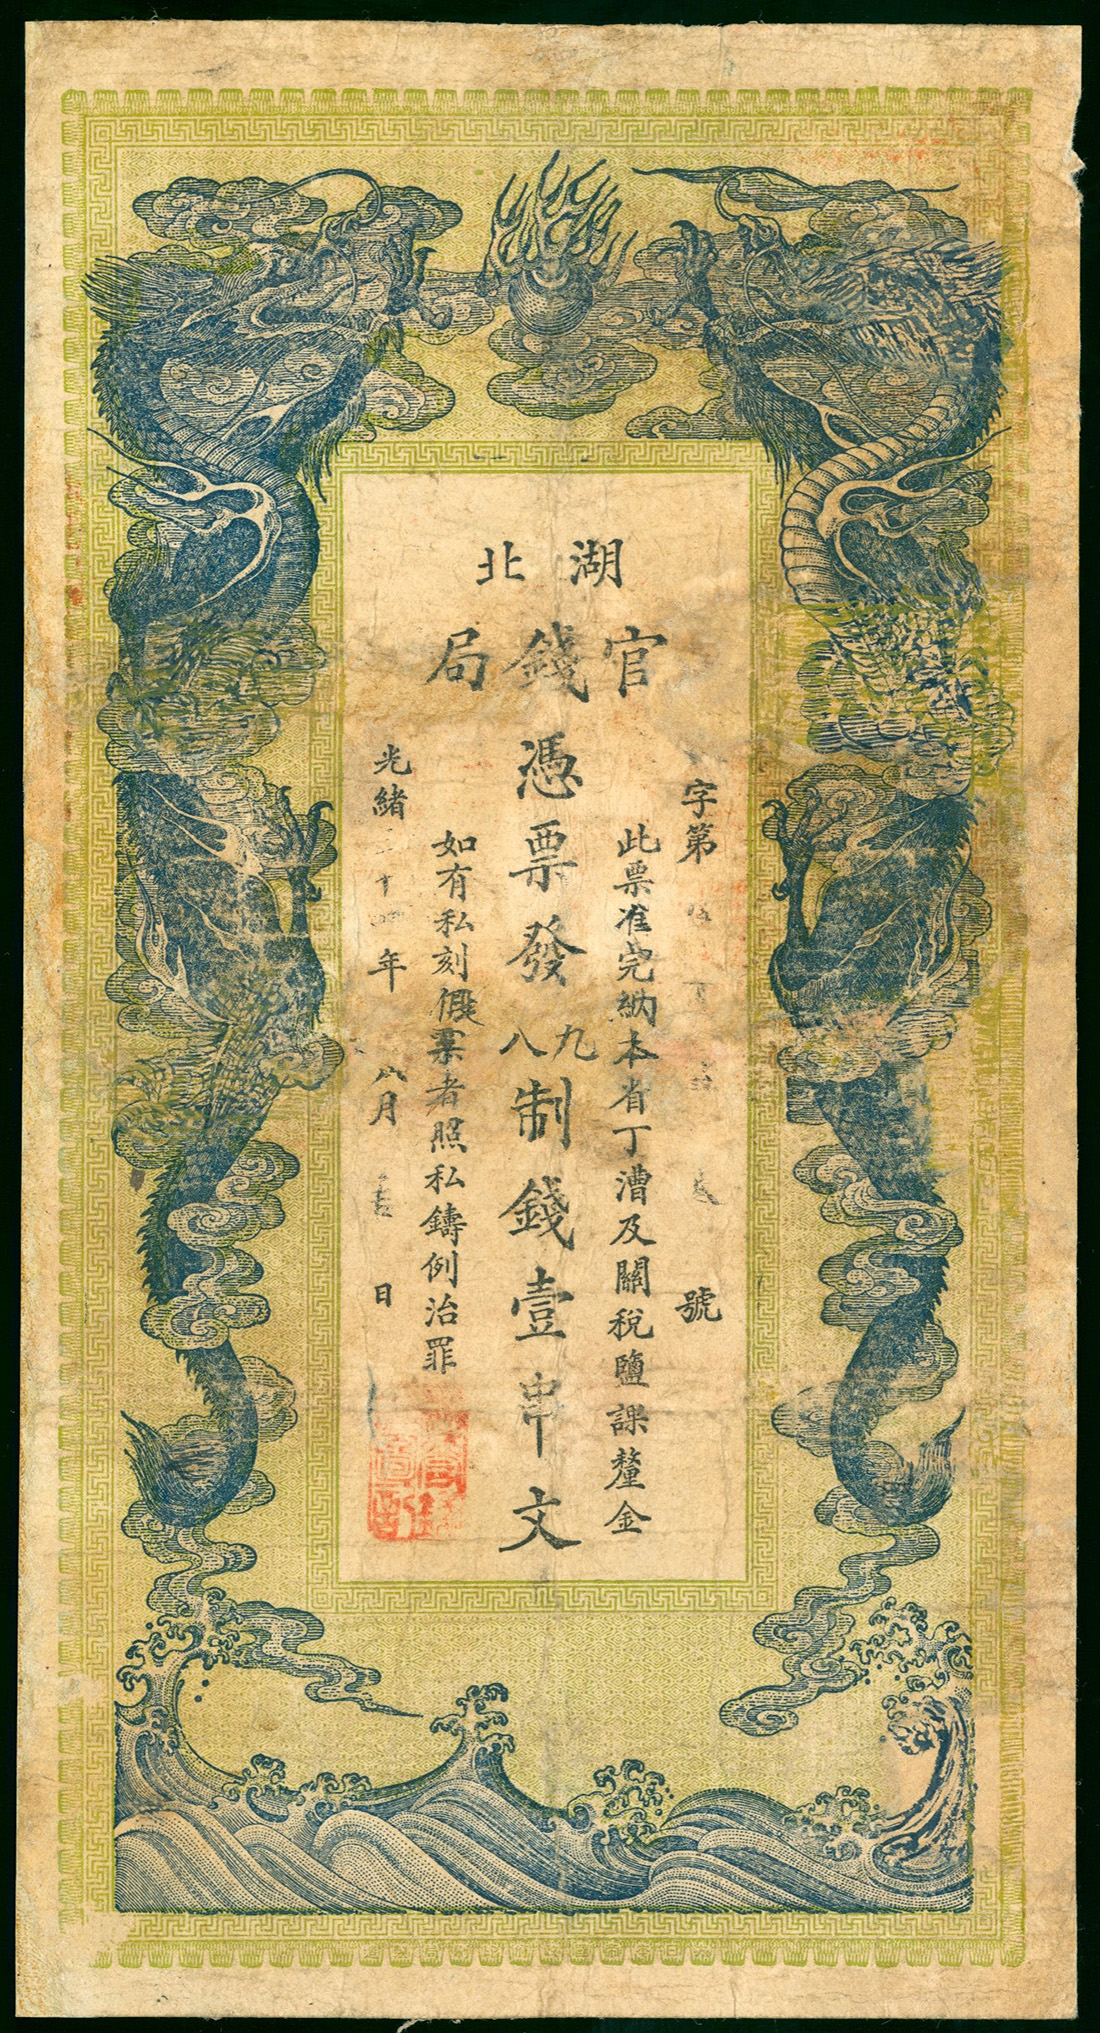 湖北
官錢局
字第 號
此票准完納本省丁漕及關稅鹽課釐金
憑票發九八制錢壹串文
如有私刻假票者照私鑄例治罪
光緒二十四年八月 日